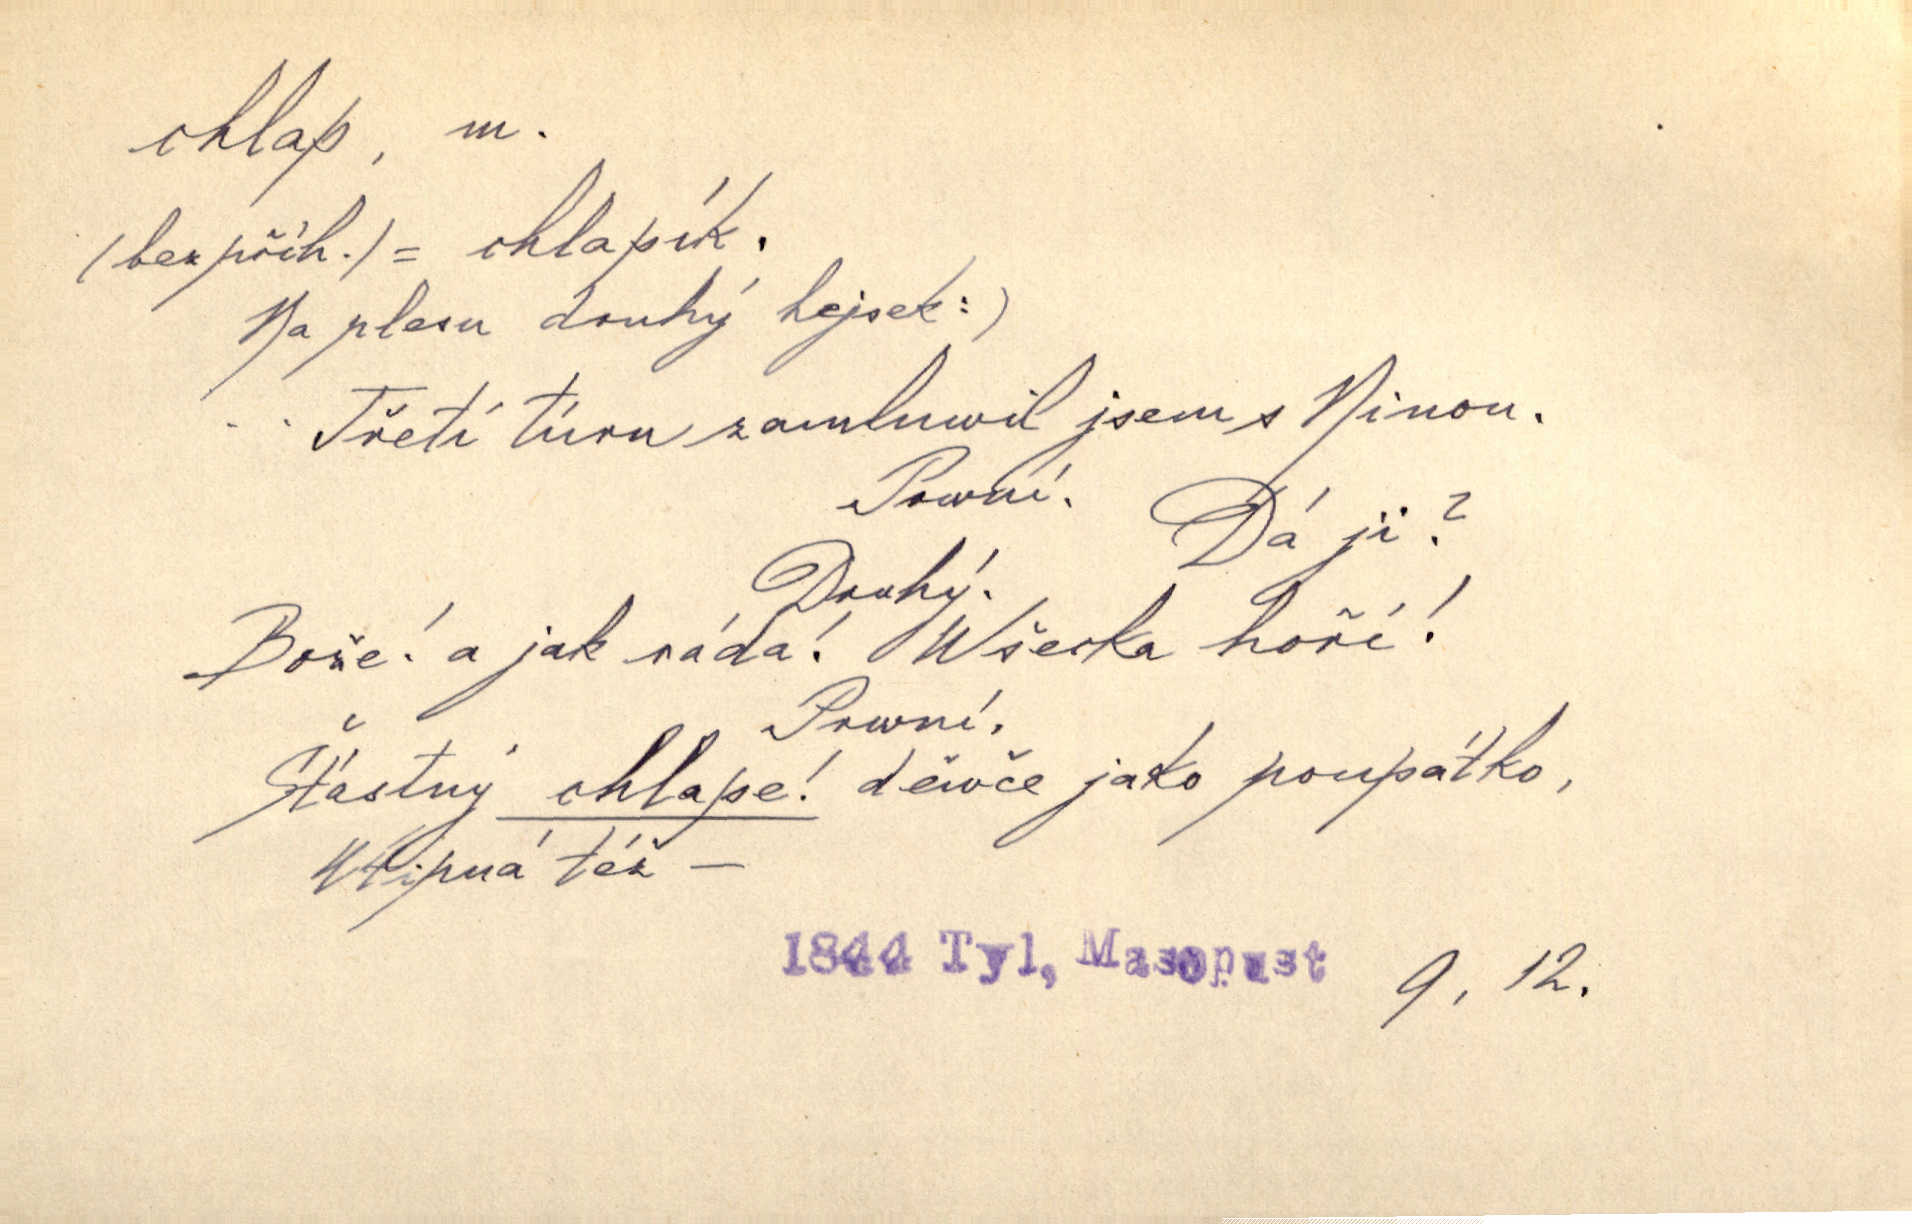 chlap, m.
(bez přih.) = chlapík.
Na plesu druhý hejsek:)
.. Třetí túru zamluwil jsem s Ninou.
Prwní.
Dá ji?
Druhý.
Bože! a jak ráda! Wšecka hoří!
Prwní.
Šťastný chlape! děwče jako poupátko,
Wtipná též —
1844 Tyl, Masopust 9, 12.